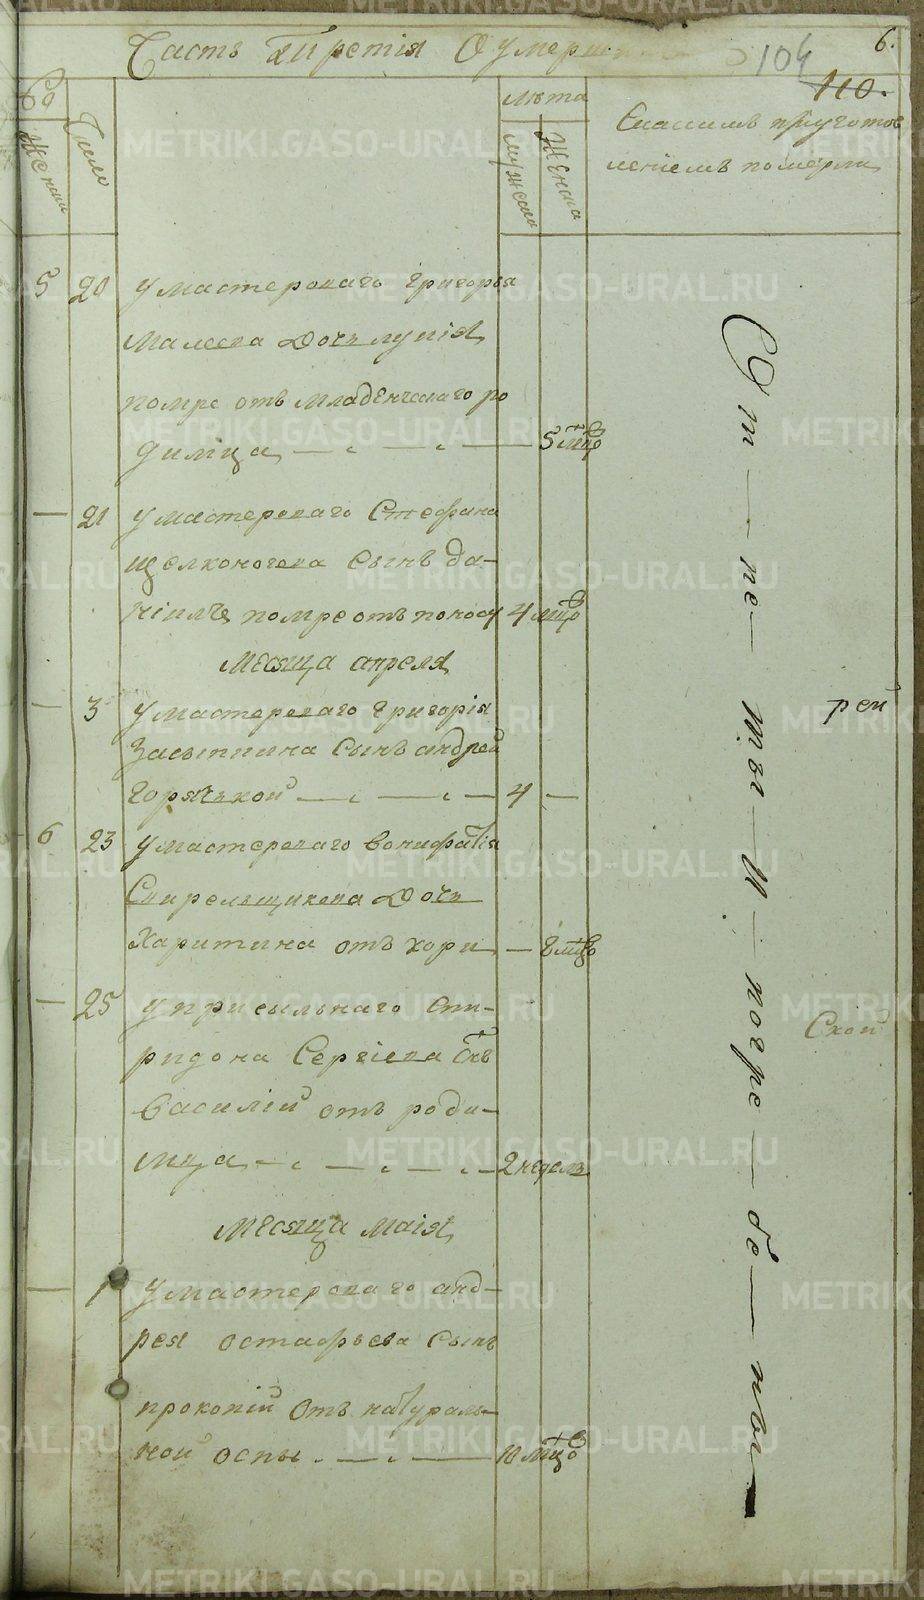 Часть Третія О умерш
6.
104
110.
Число
Женска
лѣта
мужска
Женска
Скасимъ приуготов
леніемъ померли
5 20 У мастероваго Григорья
Малеева Дочь лупія
помре отъ младенческаго ро
димца 5 мцов
— 21 У мастероваго Стефана
щелконогова Сынъ Да-
ніилъ помре отъ поносу 4 мцо
Месяца апреля
— 3 У мастероваго Григорія
Засыпкина Сынъ андрей
горячкой 4 —
6 23 У мастероваго Вонифатія
Свирельщикова Дочь
Харитина отъ кори — 8 мцов
— 25 У присыльнаго Спи-
ридона Сергіева Снъ
Василій отъ роди-
мца 2 недель
Месяца маія
— 1 У мастероваго анд-
рея остафьева Сынъ
прокопій отъ натураль-
ной оспы 10 мцов
рей
Ской
METRIKI.GASO-URAL.RU